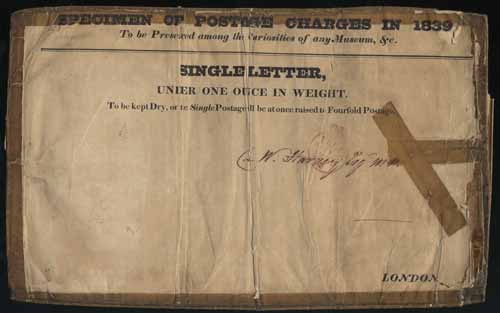 SPECIMEN OF POSTAGE CHARGES IN 1839
To be Preserved among the Curiosities of any Museum, &c.
SINGLE LETTER,
UNDER ONE OUNCE IN WEIGHT.
To be kept Dry, or the Single Postage will be at once raised to Fourfold Postage.
W. Harvey Esq
LONDON.